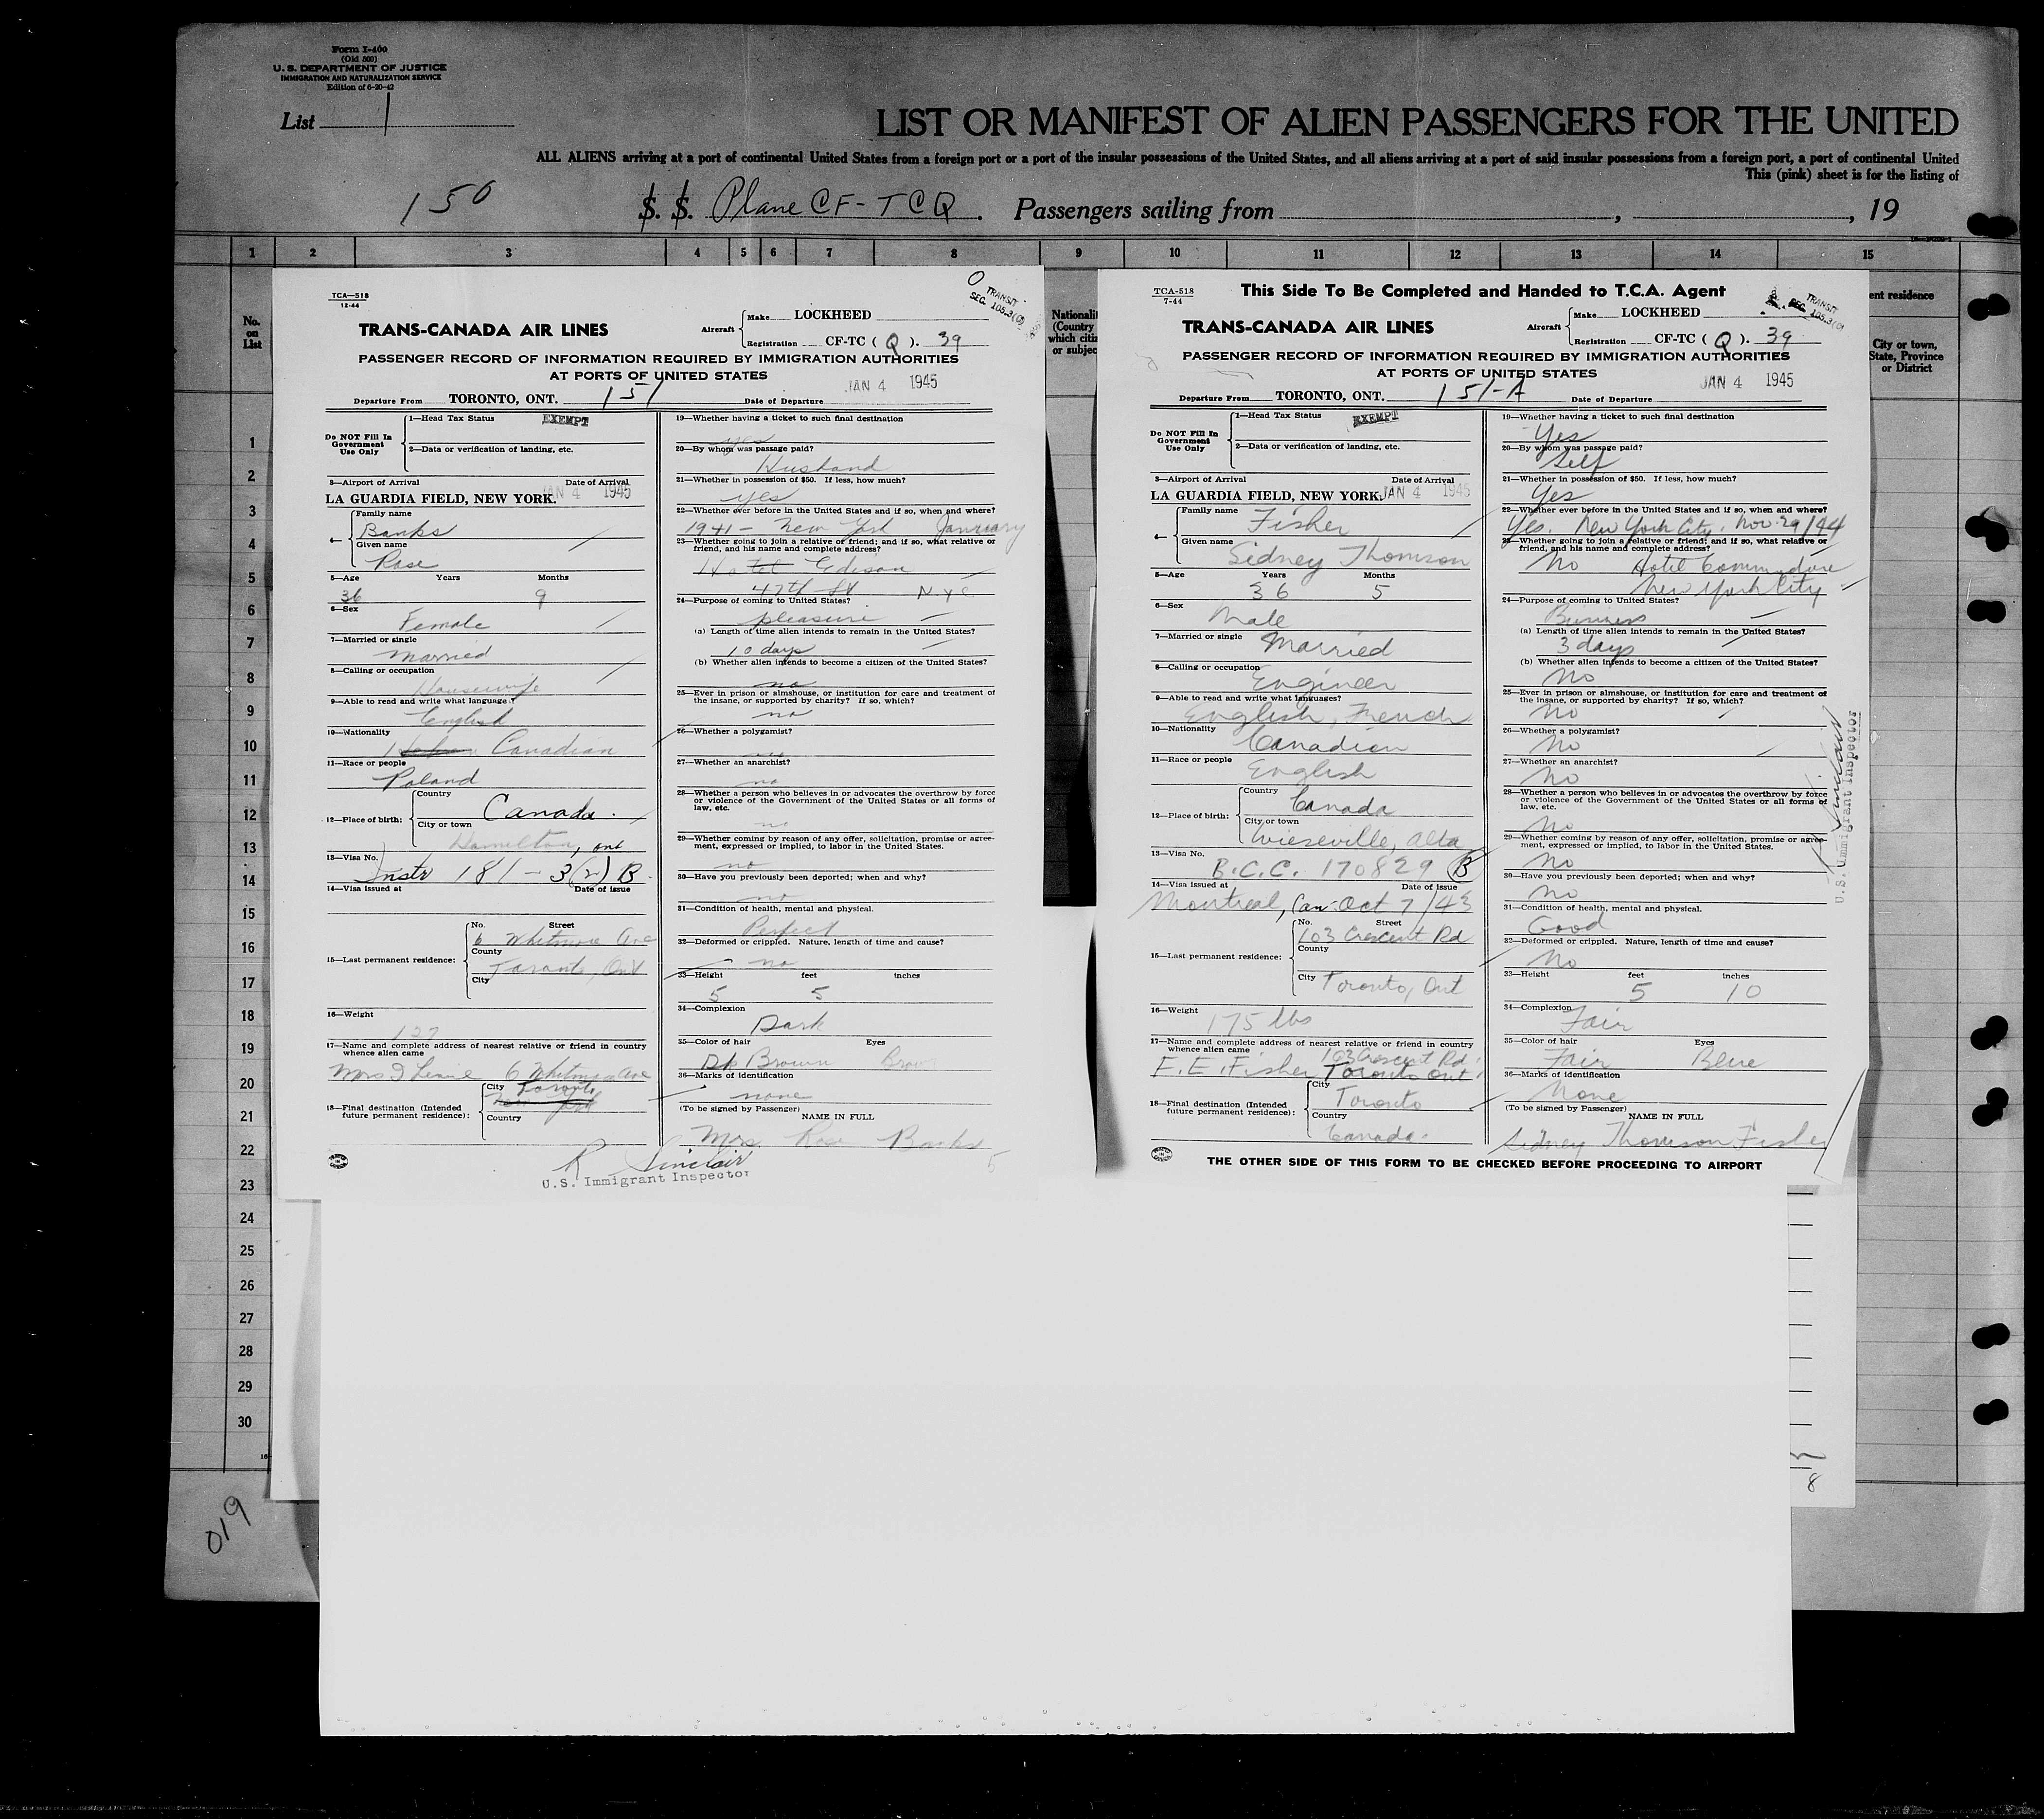 Form I-400
(Old 500)
U. S. DEPARTMENT OF JUSTICE
IMMIGRATION AND NATURALIZATION SERVICE
Edition of 6-20-42
List 1
LIST OR MANIFEST OF ALIEN PASSENGERS FOR THE UNITED
ALL ALIENS arriving at a port of continental United States from a foreign port or a port of the insular possessions of the United States, and all aliens arriving at a port of said insular possessions from a foreign port, a port of continental United
This (pink) sheet is for the listing of
150 S. S. Plane CF-TCQ. Passengers sailing from , , 19
1 2 3 4 5 6 7 8 9 10 11 12 13 14 15
No.
on
List
1
2
3
4
5
6
7
8
9
10
11
12
13
14
15
16
17
18
19
20
21
22
23
24
25
26
27
28
29
30
019
TCA—518
12-44
TRANSIT
SEC. 105.3(0)
TRANS-CANADA AIR LINES
Aircraft
Make LOCKHEED
Registration CF-TC ( Q ). 39
PASSENGER RECORD OF INFORMATION REQUIRED BY IMMIGRATION AUTHORITIES
AT PORTS OF UNITED STATES
Departure From TORONTO, ONT. 151 Date of Departure JAN 4 1945
Do NOT Fill In
Government
Use Only
1—Head Tax Status EXEMPT
2—Data or verification of landing, etc.
3—Airport of Arrival Date of Arrival
LA GUARDIA FIELD, NEW YORK. JAN 4 1945
4—
Family name
Banks
Given name
Rose
5—Age Years Months
36 9
6—Sex
Female
7—Married or single
Married
8—Calling or occupation
Housewife
9—Able to read and write what language?
English
10—Nationality
Canadian
11—Race or people
Poland
12—Place of birth:
Country
Canada.
City or town
Hamilton, ont
13—Visa No.
Instr 181 - 3(2) B.
14—Visa issued at Date of issue
15—Last permanent residence:
No. Street
6 Whitmore Ave
County
Toronto, Ont
City
16—Weight
127
17—Name and complete address of nearest relative or friend in country
whence alien came
Mrs 6 Whitmore Ave
18—Final destination (Intended
future permanent residence):
City Toronto
New York
Country
19—Whether having a ticket to such final destination
yes
20—By whom was passage paid?
Husband
21—Whether in possession of $50. If less, how much?
yes
22—Whether ever before in the United States and if so, when and where?
1941 - New York January
23—Whether going to join a relative or friend; and if so, what relative or
friend, and his name and complete address?
Hotel Edison
47th St N Y C
24—Purpose of coming to United States?
pleasure
(a) Length of time alien intends to remain in the United States?
10 days
(b) Whether alien intends to become a citizen of the United States?
no
25—Ever in prison or almshouse, or institution for care and treatment of
the insane, or supported by charity? If so, which?
no
26—Whether a polygamist?
no
27—Whether an anarchist?
no
28—Whether a person who believes in or advocates the overthrow by force
or violence of the Government of the United States or all forms of
law, etc.
no
29—Whether coming by reason of any offer, solicitation, promise or agree-
ment, expressed or implied, to labor in the United States.
no
30—Have you previously been deported; when and why?
no
31—Condition of health, mental and physical.
Perfect
32—Deformed or crippled. Nature, length of time and cause?
no
33—Height feet inches
5 5
34—Complexion
Dark
35—Color of hair Eyes
Dk Brown Brown
36—Marks of identification
none
(To be signed by Passenger) NAME IN FULL
Mrs. Rose Banks
R Sinclair
U.S. Immigrant Inspector
TCA-518
7-44
This Side To Be Completed and Handed to T.C.A. Agent
TRANSIT
SEC. 105.3(0)
TRANS-CANADA AIR LINES
Aircraft
Make LOCKHEED
Registration CF-TC ( Q ). 39
PASSENGER RECORD OF INFORMATION REQUIRED BY IMMIGRATION AUTHORITIES
AT PORTS OF UNITED STATES
Departure From TORONTO, ONT. 151-A Date of Departure JAN 4 1945
Do NOT Fill In
Government
Use Only
1—Head Tax Status EXEMPT
2—Data or verification of landing, etc.
3—Airport of Arrival Date of Arrival
LA GUARDIA FIELD, NEW YORK. JAN 4 1945
4—
Family name
Fisher
Given name
Sidney Thomson
5—Age Years Months
36 5
6—Sex
Male
7—Married or single
Married
8—Calling or occupation
Engineer
9—Able to read and write what languages?
English, French
10—Nationality
Canadian
11—Race or people
English
12—Place of birth:
Country
Canada
City or town
Wieseville, Alta
13—Visa No.
B.C.C. 170829 B
14—Visa issued at Date of issue
Montreal, Can Oct 7/43
15—Last permanent residence:
No. Street
103 Crescent Rd
County
City Toronto, Ont
16—Weight
175 lbs
17—Name and complete address of nearest relative or friend in country
whence alien came
103 Crescent Rd.
E. E. Fisher Toronto Ont.
18—Final destination (Intended
future permanent residence):
City
Toronto
Country
Canada.
19—Whether having a ticket to such final destination
Yes
20—By whom was passage paid?
Self
21—Whether in possession of $50. If less, how much?
Yes
22—Whether ever before in the United States and if so, when and where?
Yes. New York City, Nov. 29/44
23—Whether going to join a relative or friend; and if so, what relative or
friend, and his name and complete address?
No Hotel Commodore
New York City
24—Purpose of coming to United States?
Business
(a) Length of time alien intends to remain in the United States?
3 days
(b) Whether alien intends to become a citizen of the United States?
No
25—Ever in prison or almshouse, or institution for care and treatment of
the insane, or supported by charity? If so, which?
No
26—Whether a polygamist?
No
27—Whether an anarchist?
No
28—Whether a person who believes in or advocates the overthrow by force
or violence of the Government of the United States or all forms of
law, etc.
No
29—Whether coming by reason of any offer, solicitation, promise or agree-
ment, expressed or implied, to labor in the United States.
No
30—Have you previously been deported; when and why?
No
31—Condition of health, mental and physical.
Good
32—Deformed or crippled. Nature, length of time and cause?
No
33—Height feet inches
5 10
34—Complexion
Fair
35—Color of hair Eyes
Fair Blue
36—Marks of identification
None
(To be signed by Passenger) NAME IN FULL
Sidney Thomson Fisher
THE OTHER SIDE OF THIS FORM TO BE CHECKED BEFORE PROCEEDING TO AIRPORT
R Sinclair
U.S. Immigrant Inspector
ent residence
City or town,
State, Province
or District
8